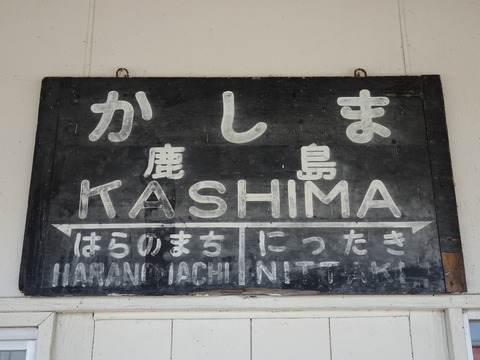 かしま
鹿島
KASHIMA
はらのまち にったき
HARANOMACHI NITTAKI